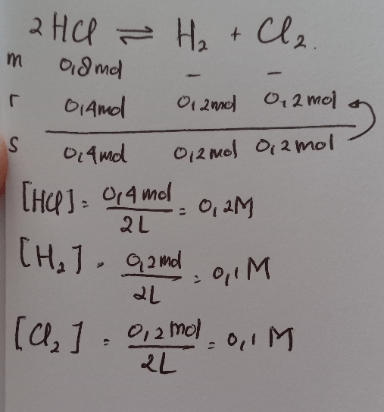 2 HCl ⇌ H₂ + Cl₂.
m 0,8mol - -
r 0,4mol 0,2mol 0,2mol
s 0,4mol 0,2mol 0,2mol
[HCl] = 0,4mol / 2L = 0,2M
[H₂] = 0,2mol / 2L = 0,1M
[Cl₂] = 0,2mol / 2L = 0,1 M